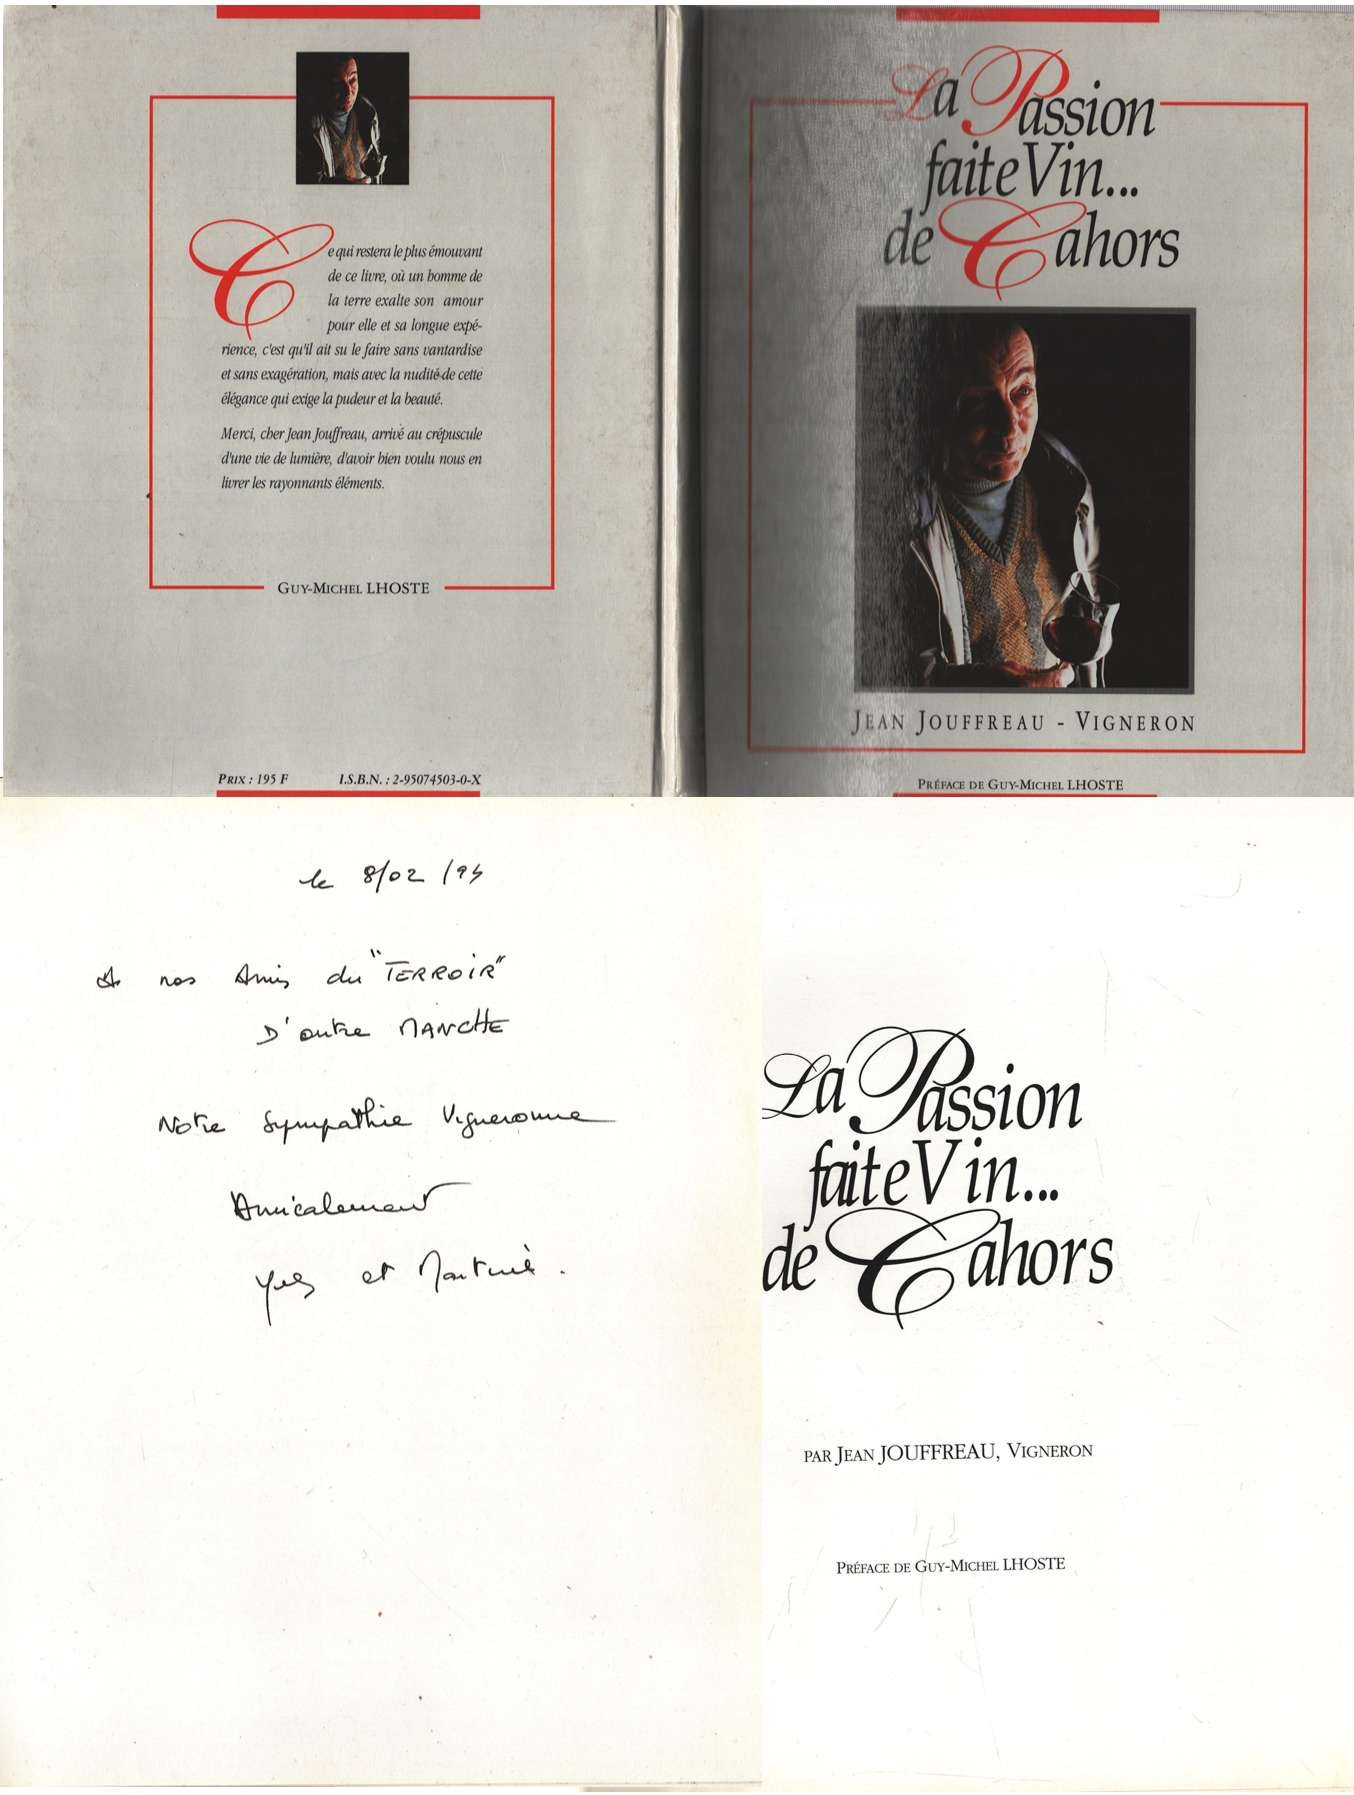 Ce qui restera le plus émouvant
de ce livre, où un homme de
la terre exalte son amour
pour elle et sa longue expé-
rience, c'est qu'il ait su le faire sans vantardise
et sans exagération, mais avec la nudité de cette
élégance qui exige la pudeur et la beauté.
Merci, cher Jean Jouffreau, arrivé au crépuscule
d'une vie de lumière, d'avoir bien voulu nous en
livrer les rayonnants éléments.
GUY-MICHEL LHOSTE
PRIX : 195 F I.S.B.N. : 2-95074503-0-X
La Passion
faite Vin...
de Cahors
JEAN JOUFFREAU - VIGNERON
PRÉFACE DE GUY-MICHEL LHOSTE
le 8/02/94
A nos Amis du "TERROIR"
D'outre MANCHE
Notre Sympathie Vigneronne
Amicalement
Yves et Martine.
La Passion
faite Vin...
de Cahors
PAR JEAN JOUFFREAU, VIGNERON
PRÉFACE DE GUY-MICHEL LHOSTE